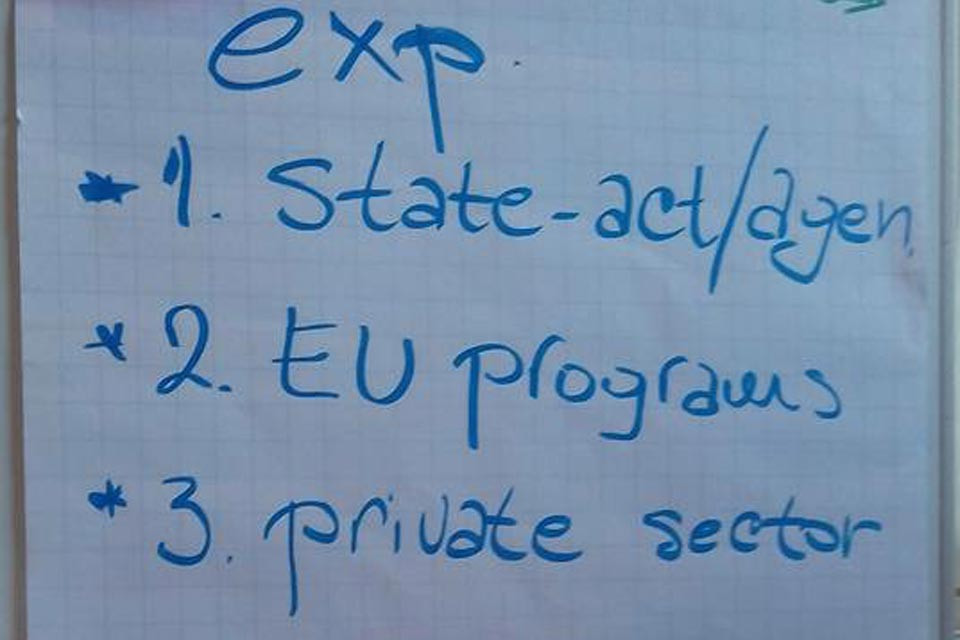 exp.
* 1. State-act/agen.
* 2. EU programs
* 3. private sector